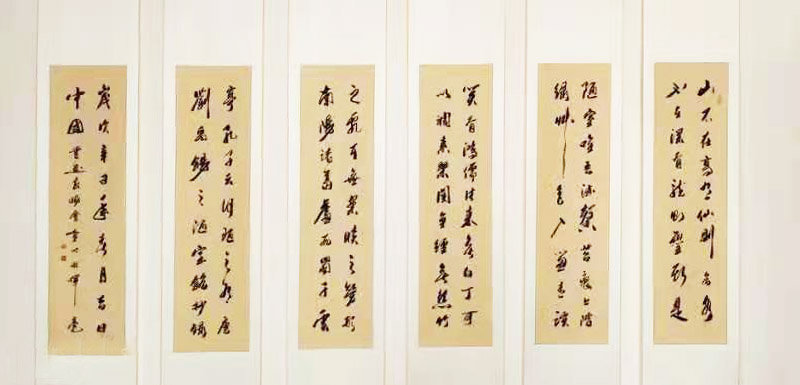 山不在高有仙則名水
不在深有龍則靈斯是
陋室唯吾德馨苔痕上階
綠草色入簾青談
笑有鴻儒往來無白丁可
以調素琴閱金經無絲竹
之亂耳無案牘之勞形
南陽諸葛廬西蜀子雲
亭孔子云何陋之有唐
劉禹錫之陋室銘抄錄
歲次辛年春月吉日
中國書画家協會揮毫